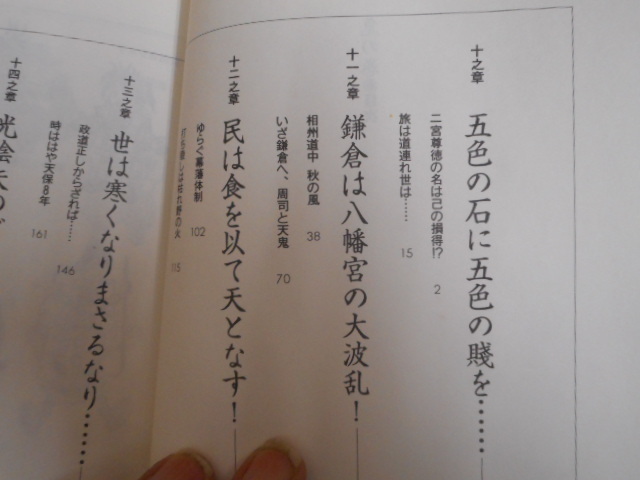 十之章
五色の石に五色の賤を……
二宮尊徳の名は己の損得!? 2
旅は道連れ世は…… 15
十一之章
鎌倉は八幡宮の大波乱!
相州道中 秋の風 38
いざ鎌倉へ、周司と天鬼 70
十二之章
民は食を以て天となす!
ゆらぐ幕藩体制 102
打ち壊しは枯れ野の火 115
十三之章
世は寒くなりまさるなり……
政道正しからざれば…… 146
時ははや天保8年 161
十四之章
光陰矢の